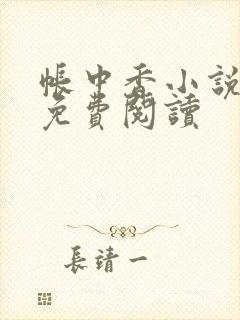 帳中香小說
免費閱讀
長靖一